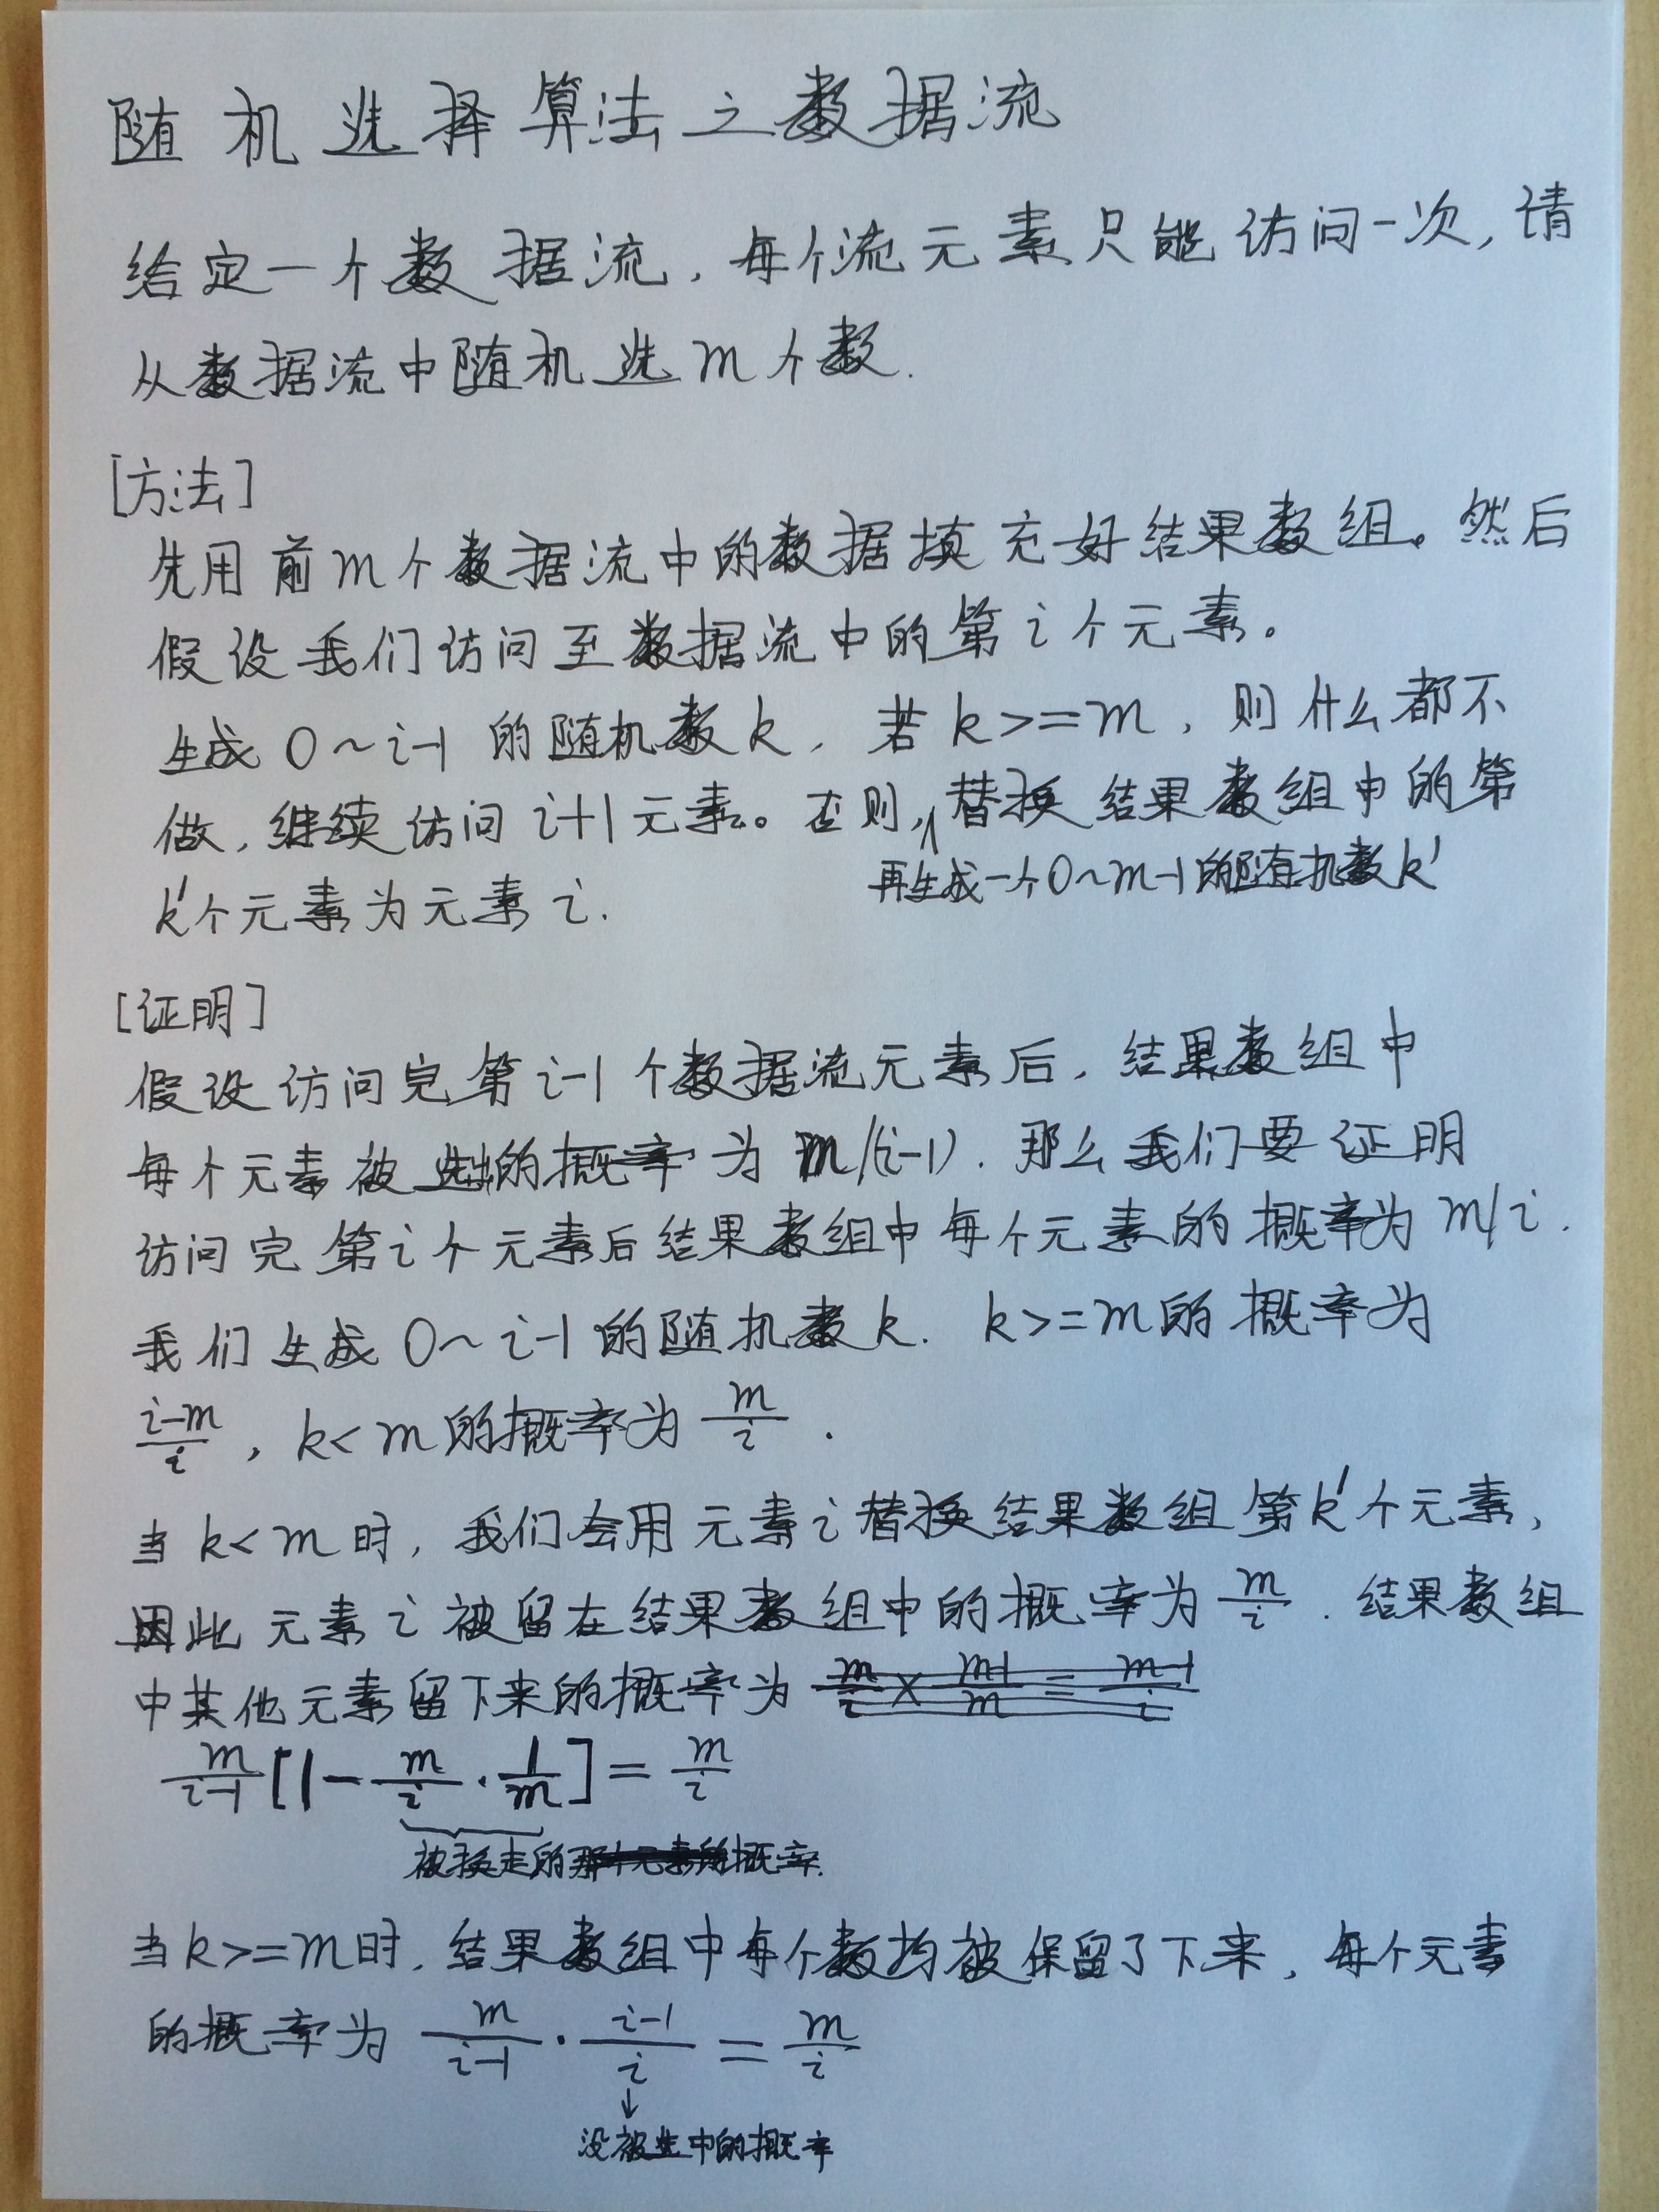 随机选择算法之数据流
给定一个数据流，每个流元素只能访问一次，请
从数据流中随机选m个数.
[方法]
先用前m个数据流中的数据填充好结果数组。然后
假设我们访问至数据流中的第i个元素。
生成0~i-1的随机数k，若k>=m，则什么都不
做，继续访问i+1元素。否则,∧替换结果数组中的第
再生成一个0~m-1的随机数k'
k'个元素为元素i.
[证明]
假设访问完第i-1个数据流元素后，结果数组中
每个元素被选出的概率为m/(i-1). 那么我们要证明
访问完第i个元素后结果数组中每个元素的概率为m/i.
我们生成0~i-1的随机数k. k>=m的概率为
(i-m)/i，k<m的概率为m/i.
当k<m时，我们会用元素i替换结果数组第k'个元素，
因此元素i被留在结果数组中的概率为m/i. 结果数组
中其他元素留下来的概率为 m/i × (m-1)/m = (m-1)/i
m/(i-1) [1 - m/i · 1/m] = m/i
被换走的那个元素的概率.
当k>=m时，结果数组中每个数均被保留了下来，每个元素
的概率为 m/(i-1) · (i-1)/i = m/i
↓
没被选中的概率